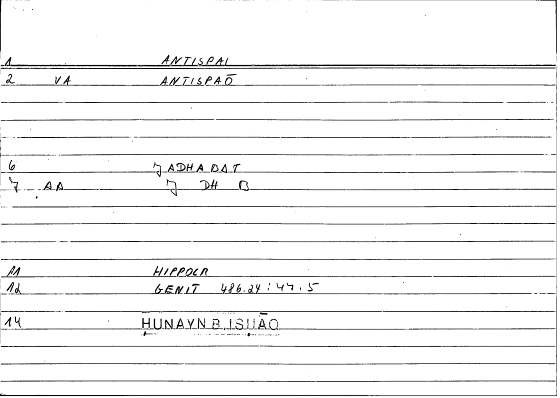 1 ANTISPAI
2 VA ANTISPAŌ
6 JADHABAT
7 AA J DH B
11 HIPPOCR
12 GENIT 486.24 : 44.5
14 ḤUNAYN B. ISḤĀQ